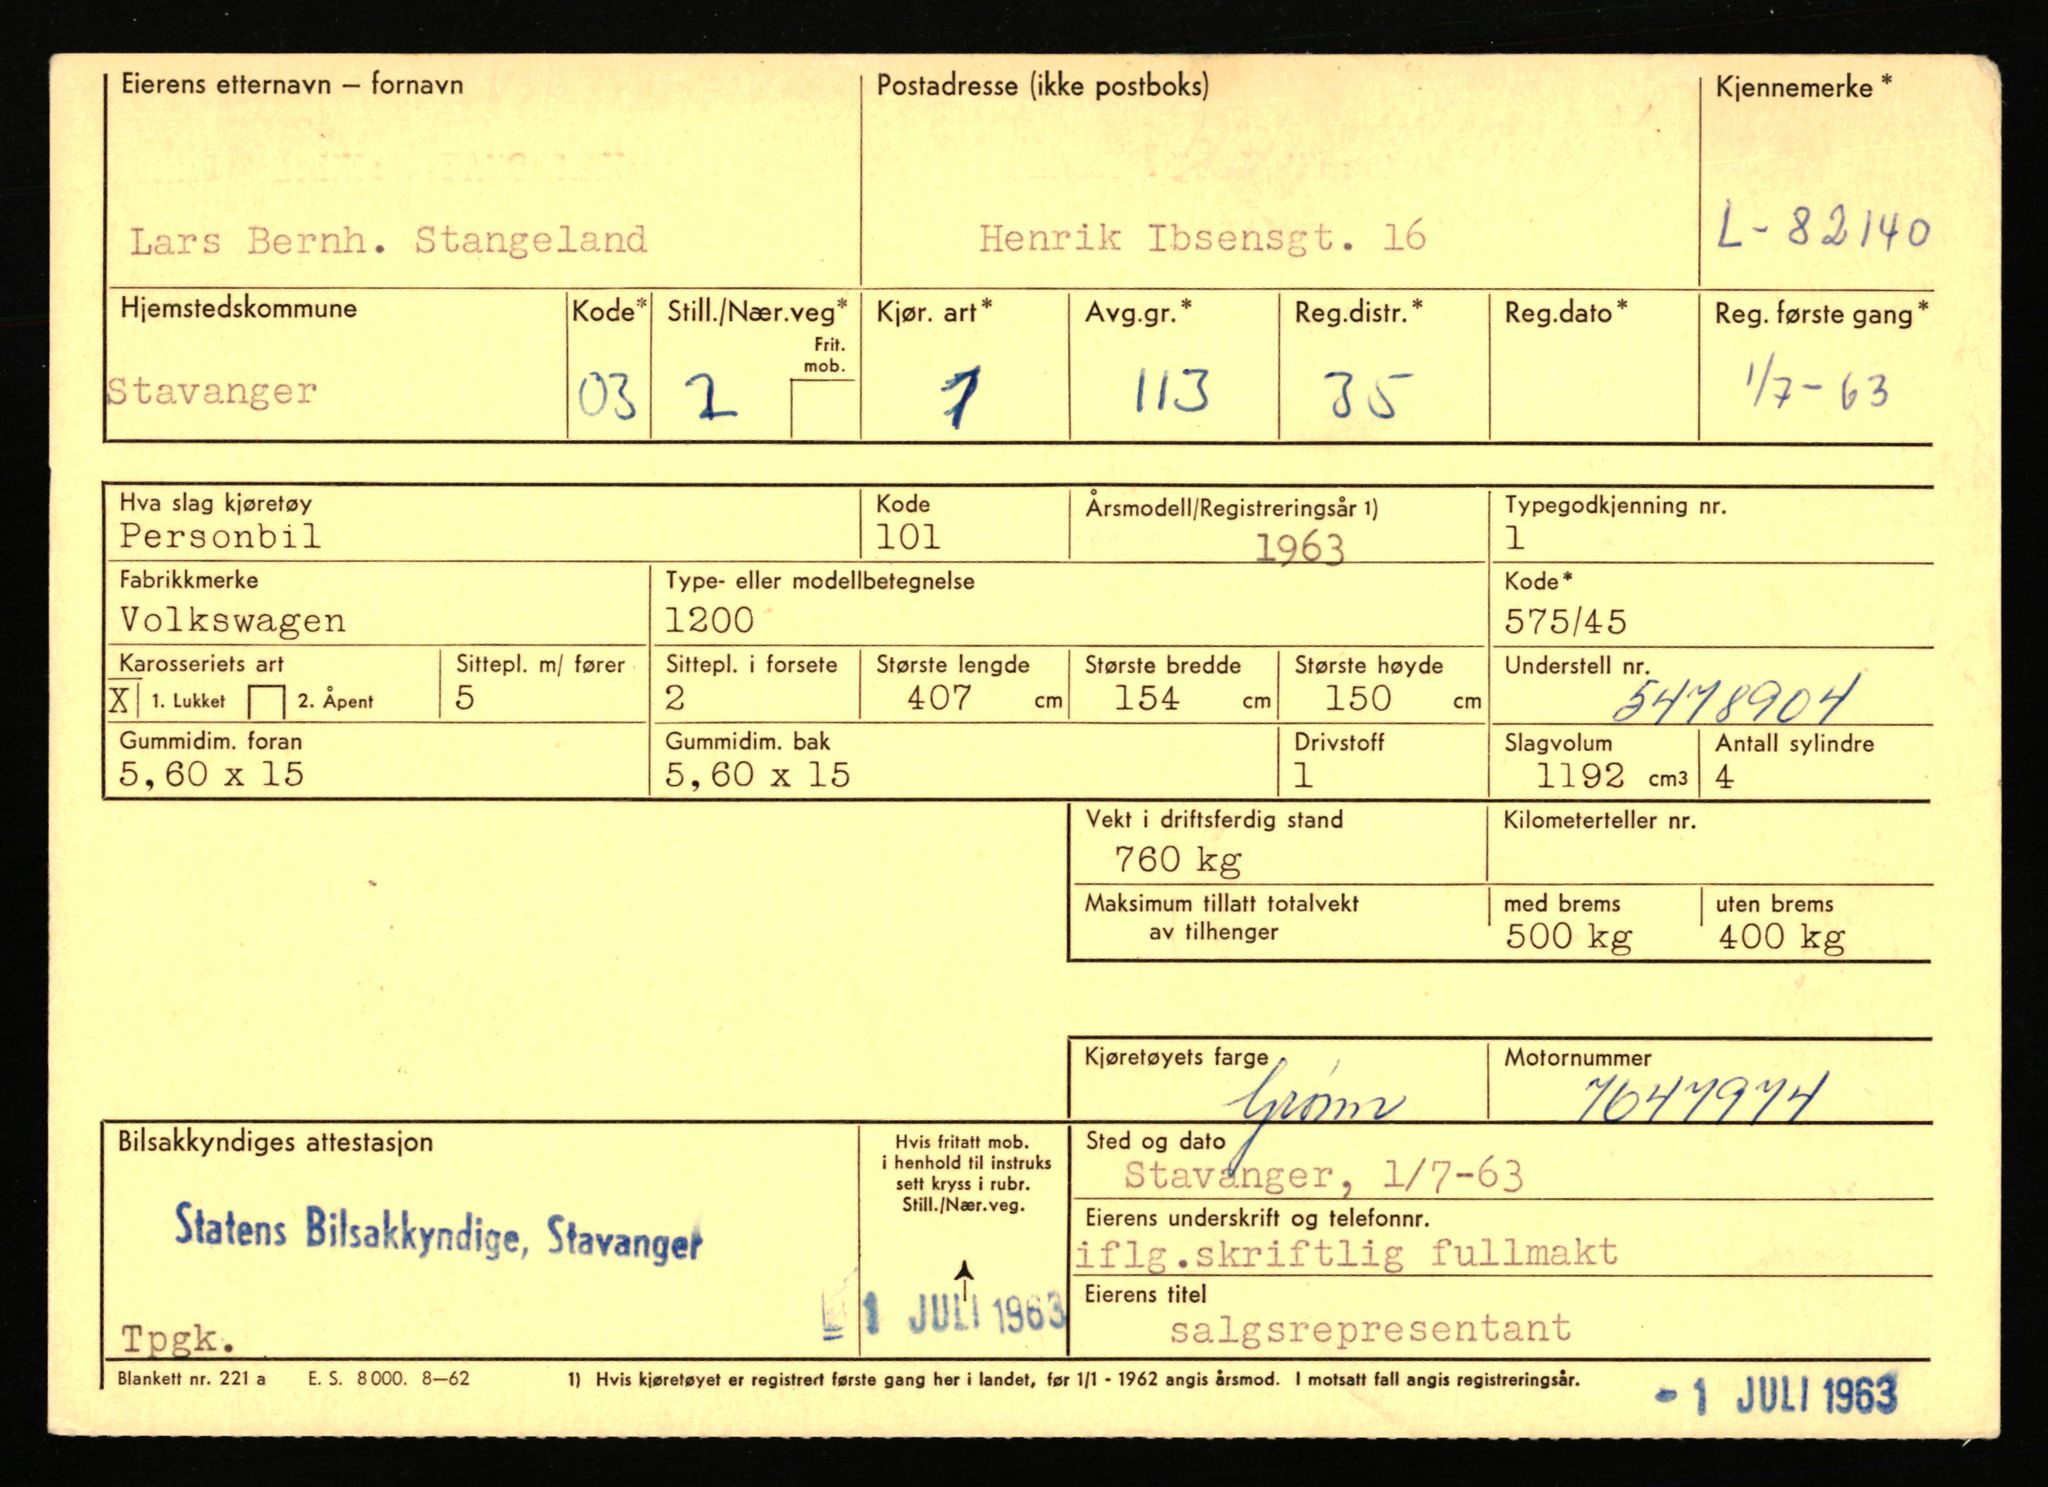 Eierens etternavn – fornavn Postadresse (ikke postboks) Kjennemerke*
Lars Bernh. Stangeland Henrik Ibsensgt. 16 L-82140
Hjemstedskommune Kode* Still./Nær.veg* Kjør. art* Avg.gr.* Reg.distr.* Reg.dato* Reg. første gang*
Frit.
mob.
Stavanger 03 2 1 113 35 1/7-63
Hva slag kjøretøy Kode Årsmodell/Registreringsår 1) Typegodkjenning nr.
Personbil 101 1963 1
Fabrikkmerke Type- eller modellbetegnelse Kode*
Volkswagen 1200 575/45
Karosseriets art Sittepl. m/ fører Sittepl. i forsete Største lengde Største bredde Største høyde Understell nr.
X 1. Lukket 2. Åpent 5 2 407 cm 154 cm 150 cm 5478904
Gummidim. foran Gummidim. bak Drivstoff Slagvolum Antall sylindre
5,60 x 15 5,60 x 15 1 1192 cm3 4
Vekt i driftsferdig stand Kilometerteller nr.
760 kg
Maksimum tillatt totalvekt med brems uten brems
av tilhenger 500 kg 400 kg
Kjøretøyets farge Motornummer
Grønn 7647974
Bilsakkyndiges attestasjon Hvis fritatt mob. Sted og dato
i henhold til instruks
sett kryss i rubr.
Still./Nær.veg.
Stavanger, 1/7-63
Statens Bilsakkyndige, Stavanger
Eierens underskrift og telefonnr.
iflg.skriftlig fullmakt
Eierens titel
1 JULI 1963
salgsrepresentant
Tpgk.
Blankett nr. 221 a E. S. 8000. 8–62 1) Hvis kjøretøyet er registrert første gang her i landet, før 1/1 - 1962 angis årsmod. I motsatt fall angis registreringsår.
- 1 JULI 1963